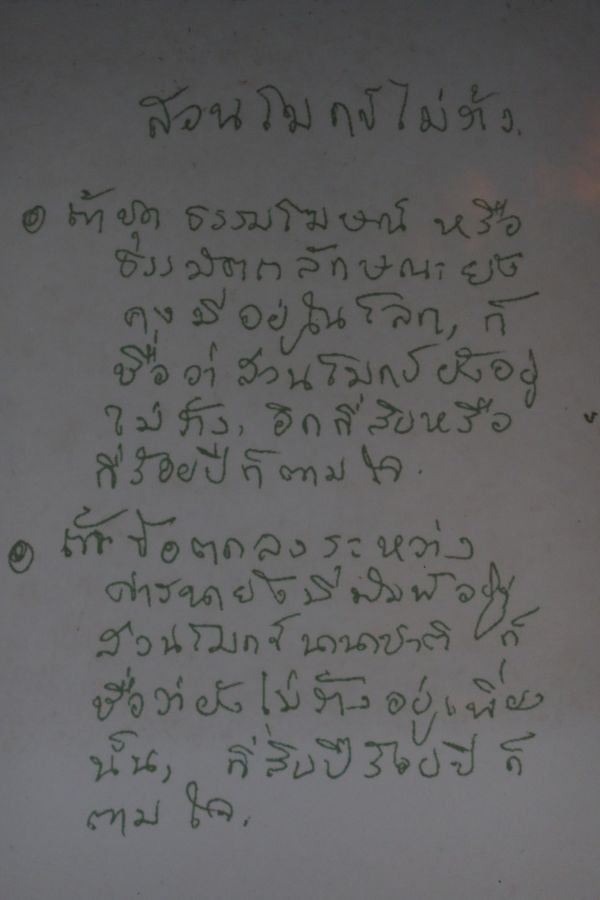 สวนโมกข์ไม่ร้าง.
ถ้าชุด ธรรมโฆษณ์ หรือ
ธรรม ลักษณะ ยัง
คงมีอยู่ในโลก, ก็
ชื่อว่า สวนโมกข์ยังอยู่
ไม่ร้าง, อีกกี่สิบหรือ
กี่ร้อยปีก็ตามใจ.
ถ้าข้อตกลงระหว่าง
ศาสนายังมีพิมพ์อยู่
สวนโมกข์นานาชาติ ก็
ชื่อว่ายังไม่ร้างอยู่เพียง
นั้น, กี่สิบปีร้อยปีก็
ตามใจ.